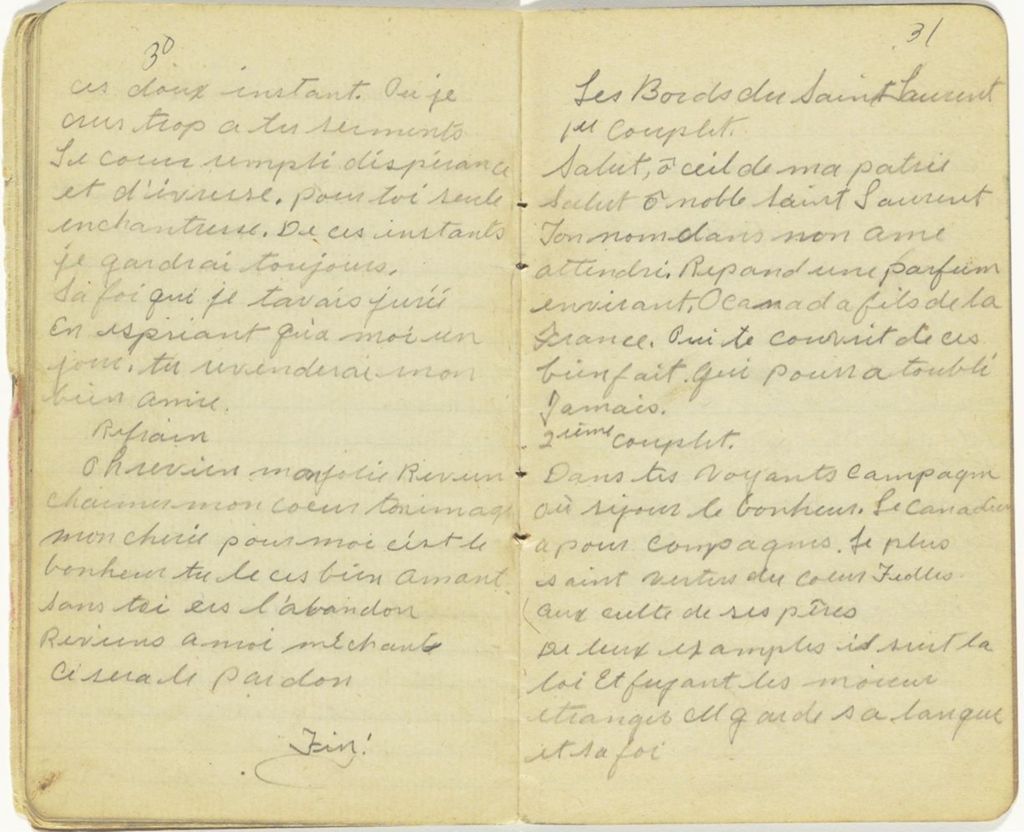 30
ces doux instant. Ou je
crus trop a tes serments
Le coeur rempli déspérance
et d'ivresse. pour toi seule
enchantresse. De ces instants
je gardrai toujours.
La foi qui je tavais jurée
En espriant qu'a moi un
jour. tu reviendrai mon
bien amie.
Refrain
Oh revien ma jolie Revien
charmer mon coeur ton image
mon cherie pour moi c'est le
bonheur tu le ces bien amant
sans toi ces l'abandon
Reviens a moi méchante
Ci sera le pardon
Fin!
31
Les Bords du Saint Laurent
1er Couplet.
Salut, ô ceil de ma patrie
Salut ô noble Saint Laurent
Ton nom dans mon ame
attendri. Repand une parfum
enivrant. O canada fils de la
France. Qui te couvrit de ces
bienfait. Qui pourra toublié
Jamais.
2ième Couplet.
Dans tes voyants campagne
où sijour le bonheur. Le canadien
a pour compagnes. Le plus
saint vertus du coeur Fedles
aux culte de ses pères
De leux examples il suit la
loi Et fuyant les moieur
etranger Il garde sa langue
et sa foi